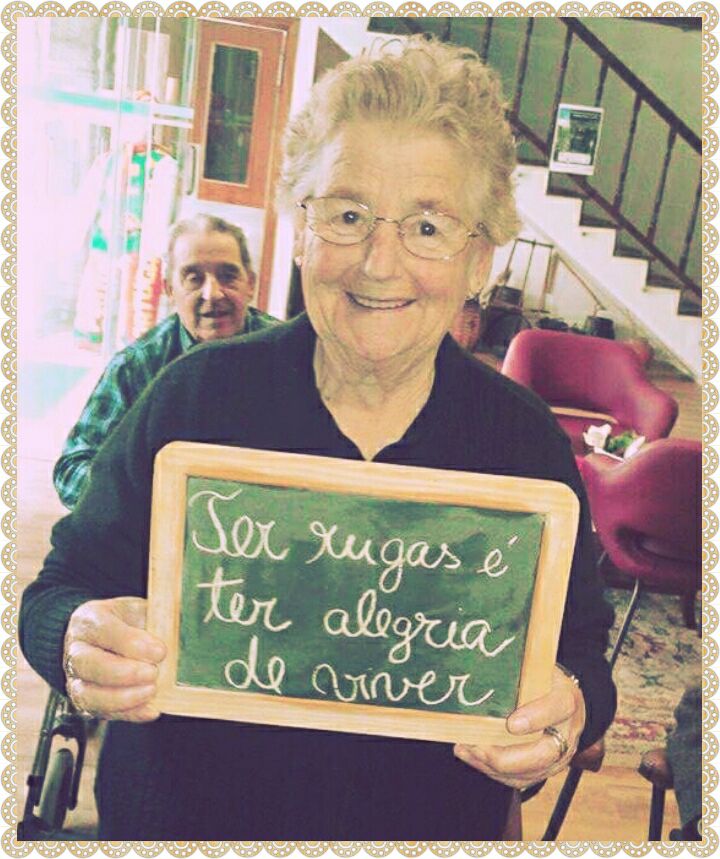 Ter rugas é
ter alegria
de viver